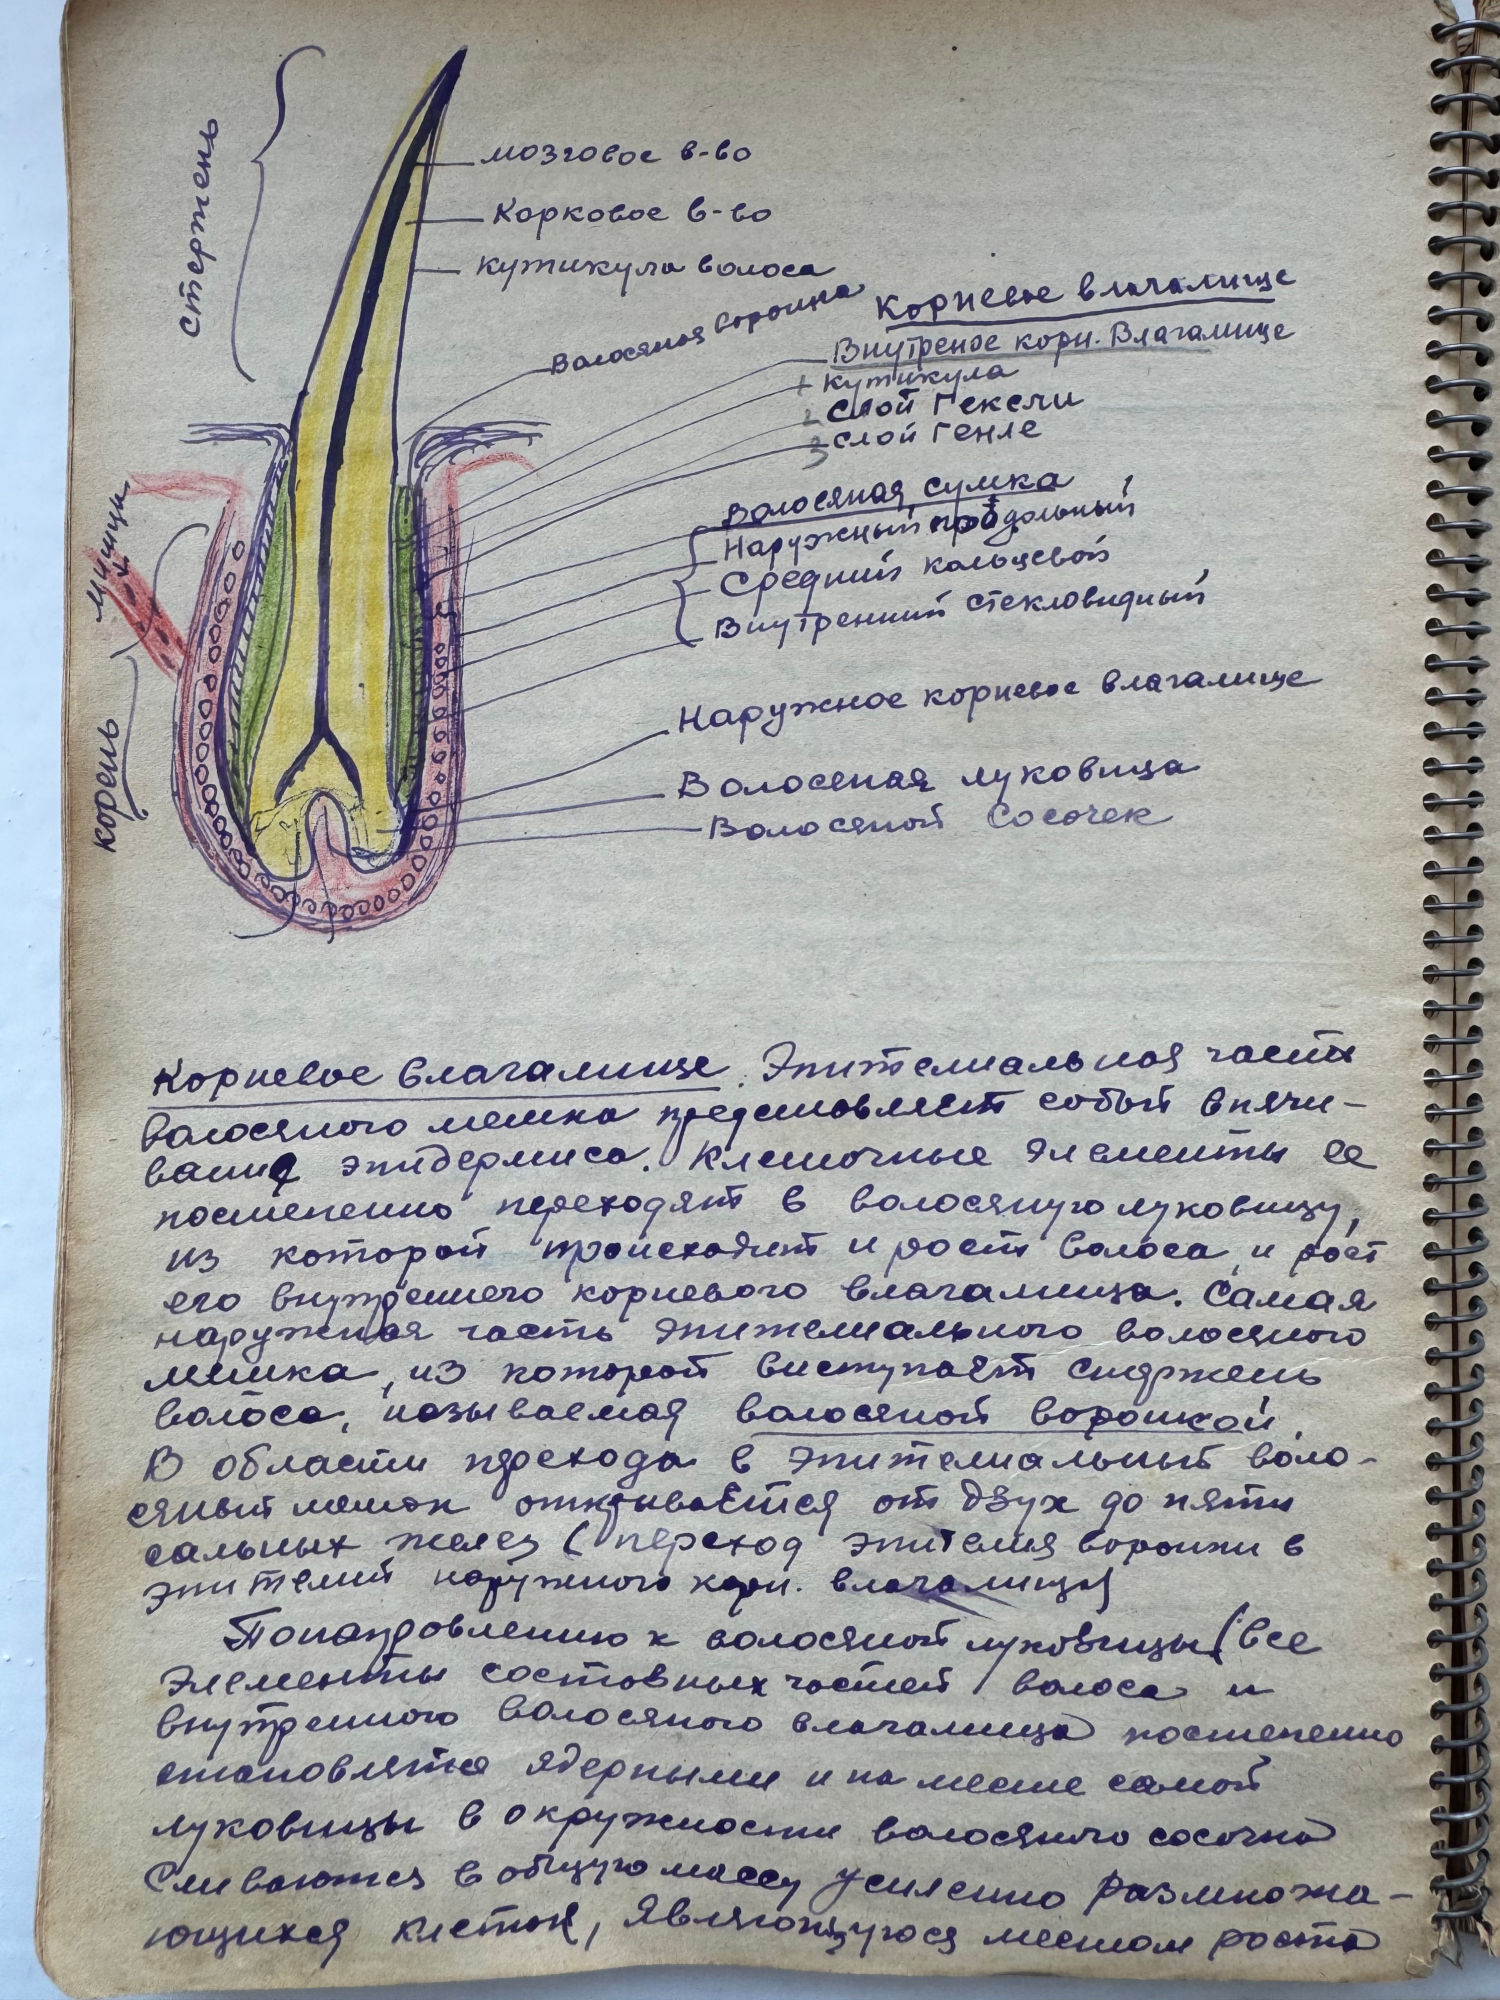 стержень
мозговое в-во
Корковое в-во
кутикула волоса
Волосяная воронка
Корневое влагалище
Внутреное корн. Влагалище
1 кутикула
2 Слой Гексли
3 слой Генле
мышцы
Волосяная сумка
Наружный продольный
Средний кольцевой
Внутренний стекловидный
корень
Наружное корневое влагалище
Волосяная луковица
Волосяной Сосочек
Корневое влагалище. Эпителиальная часть
волосяного мешка представляет собой впячи-
вание эпидермиса. Клеточные элементы ее
постепенно переходят в волосяную луковицу,
из которой происходит и рост волоса и рост
его внутреннего корневого влагалища. Самая
наружная часть эпителиального волосяного
мешка, из которой виступает стержень
волоса, называемая волосяной воронкой.
В области перехода в эпителиальный воло-
сяной мешок открывается от двух до пяти
сальных желез (переход эпителия воронки в
эпителий наружного корн. влагалища)
По направлению к волосяной луковицы (все
элементы составных частей волоса и
внутренного волосяного влагалища постепенно
становятся ядерными и на месте самой
луковицы в окружности волосяного сосочка
Сливаются в общую массу усиленно размножа-
ющихся клеток, являющуюся местом роста